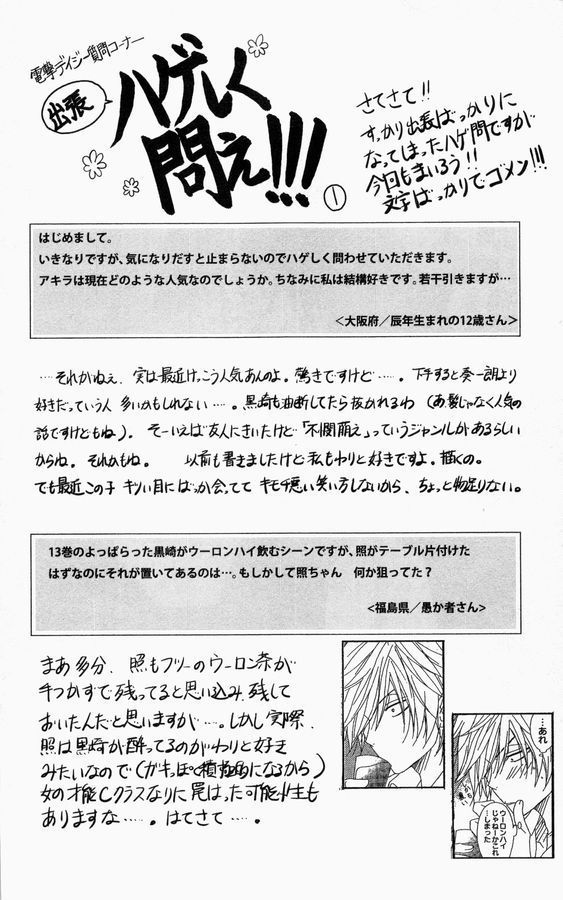 電撃デイジー質問コーナー
出張
ハゲしく
問え!!!
①
さてさて!!
すっかり出張ばっかりに
なってしまったハゲ問ですが
今回もまいろう!!
文字ばっかりでゴメン!!!
はじめまして。
いきなりですが、気になりだすと止まらないのでハゲしく問わせていただきます。
アキラは現在どのような人気なのでしょうか。ちなみに私は結構好きです。若干引きますが…
<大阪府／辰年生まれの12歳さん>
……それがねぇ、実は最近けっこう人気あんのよ。驚きですけど……。下手すると奏一郎より
好きだっていう人 多いかもしれない……。黒崎も油断してたら抜かれるわ（あ、髪じゃなく人気の
話ですけどもね）。そーいえば友人にきいたけど「不憫萌え」っていうジャンルがあるらしい
からね。それかもね。 以前も書きましたけど私もわりと好きですよ。描くの。
でも最近この子 キツい目にばっか会ってて キモチ悪い笑い方しないから、ちょっと物足りない。
13巻のよっぱらった黒崎がウーロンハイ飲むシーンですが、照がテーブル片付けた
はずなのにそれが置いてあるのは…。もしかして照ちゃん 何か狙ってた？
<福島県／愚か者さん>
まあ多分、照もフツーのウーロン茶が
手つかずで残ってると思い込み、残して
おいたんだと思いますが……。しかし実際、
照は黒崎が酔ってるのがわりと好き
みたいなので（ガキっぽく積極的になるから）
女の才能Cクラスなりに罠はった可能性も
ありますな……。はてさて……。
…あれ
ウーロンハイ
じゃねーかこれ
…しまった